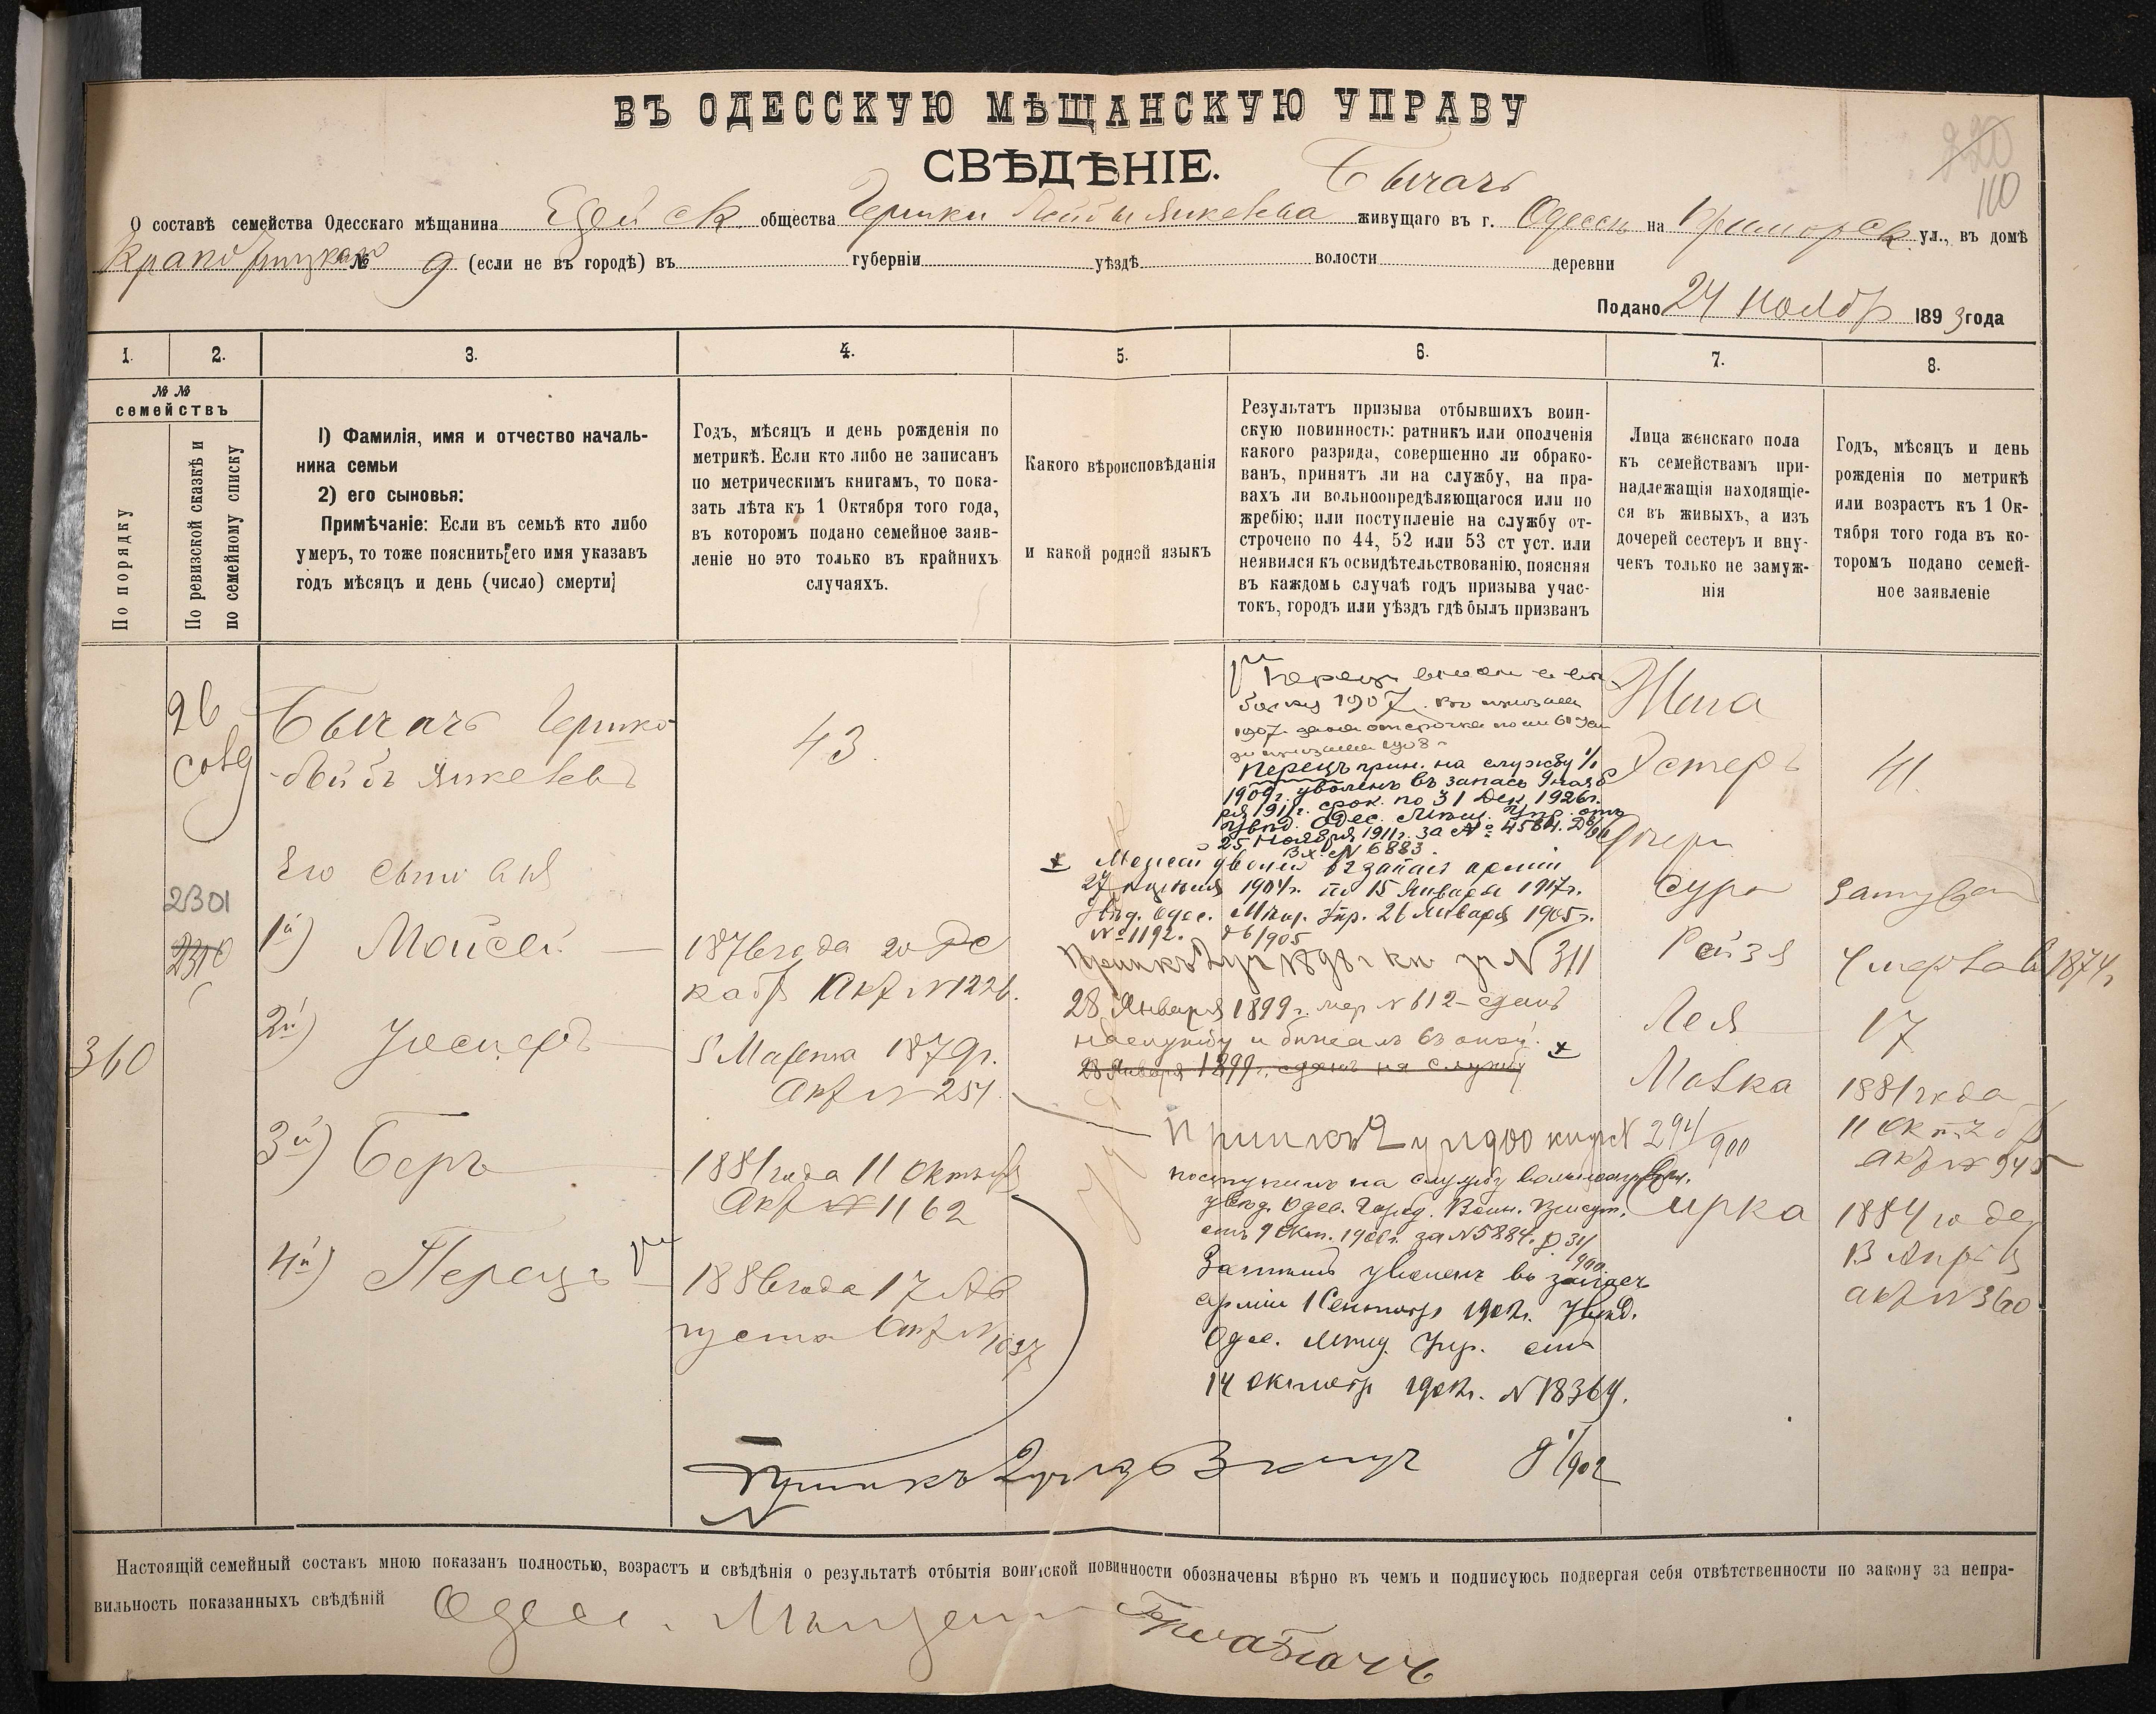 ВЪ ОДЕССКУЮ МѢЩАНСКУЮ УПРАВУ
СВѢДѢНІЕ.
220
110
Бычачъ
О составѣ семейства Одесскаго мѣщанина Еврейск общества Гершки Лейбы Янкелева живущаго въ г. Одессѣ на Приморск ул., въ домѣ
№ 9 (если не въ городѣ) въ губерніи уѣздѣ волости деревни
Подано 24 Ноябр 1893 года
1. 2. 3. 4. 5. 6. 7. 8.
№ №
семействъ
По порядку
По ревизской сказкѣ и
по семейному списку
1) Фамилія, имя и отчество началь-
ника семьи
2) его сыновья:
Примѣчаніе: Если въ семьѣ кто либо
умеръ, то тоже пояснить его имя указавъ
годъ мѣсяцъ и день (число) смерти
Годъ, мѣсяцъ и день рожденія по
метрикѣ. Если кто либо не записанъ
по метрическимъ книгамъ, то пока-
зать лѣта къ 1 Октября того года,
въ которомъ подано семейное заяв-
леніе но это только въ крайнихъ
случаяхъ.
Какого вѣроисповѣданія
и какой родной языкъ
Результатъ призыва отбывшихъ воин-
скую повинность: ратникъ или ополченія
какого разряда, совершенно ли обрако-
ванъ, принятъ ли на службу, на пра-
вахъ ли вольноопредѣляющагося или по
жребію; или поступленіе на службу от-
строчено по 44, 52 или 53 ст уст. или
неявился къ освидѣтельствованію, поясняя
въ каждомъ случаѣ годъ призыва учас-
токъ, городъ или уѣздъ гдѣ былъ призванъ
Лица женскаго пола
къ семействамъ при-
надлежащія находящіе-
ся въ живыхъ, а изъ
дочерей сестеръ и вну-
чекъ только не замуж-
нія
Годъ, мѣсяцъ и день
рожденія по метрикѣ
или возрастъ къ 1 Ок-
тября того года въ ко-
торомъ подано семей-
ное заявленіе
360
26
2301
2310
Бычачъ Гершко-
Лейбъ Янкелевъ
Его сыновья
1й) Мойсей
2й) Іосифъ
3й) Беръ
4й) Перецъ
43
1876 года 20 Де
кабр Акт N 1226.
5 Марта 1879 г.
Акт N 254
1881 года 11 Октября
Акт N 1162
1886 года 17 Ав
густа Акт N 1037
Перецъ
1907. призыва
1907 отсрочка по 61
до призыва 1908 г
Перецъ прин. на службу 1/I
1909 г. уволенъ въ запасъ 9 нояб
ря 1911 г. срок. по 31 Дек. 1926 г.
Увѣд. Одес. Мѣщ. Упр. отъ
25 Ноября 1911 г. за № 4584.
Вх. N 6883.
Мойсей уволен въ запас арміи
27 1904 г. по 15 Января 1917 г.
Увѣд. Одес. Мѣщ. Упр. 26 Января 1905 г.
№ 1192. д 6/1905
Приписк 2 уч 1898 г кн N 311
28 Января 1899 г. N 612 сданъ
на службу и 63
28 Января 1899 г. сданъ на службу
Приписк 2 уч 1900 N 294/900
поступилъ на службу вольноопред.
увѣд. Одес. Город. Воин. Присут.
отъ 9 Окт. 1900 г. за N 5884. д 31/900
Затѣмъ уволенъ въ запасъ
арміи 1 Сентябр 1902 г. Увѣд.
Одес. Мѣщ. Упр. отъ
14 Октябр 1902 г. N 18364.
Приписк 2 уч 1/902
Жена
Эстеръ
Дочери
Сура
Рейзя
Лея
Мовка
Сирка
41.
замужем
умерла въ 1874 г.
17
1881 года
11 Октября
акт N 945
1884 года
13 Апрѣля
акт N 360
Настоящій семейный составъ мною показанъ полностью, возрастъ и свѣдѣнія о результатѣ отбытія воинской повинности обозначены вѣрно въ чемъ и подписуюсь подвергая себя отвѣтственности по закону за непра-
вильность показанныхъ свѣдѣній Одес. Мѣщанин Герш Бычачъ